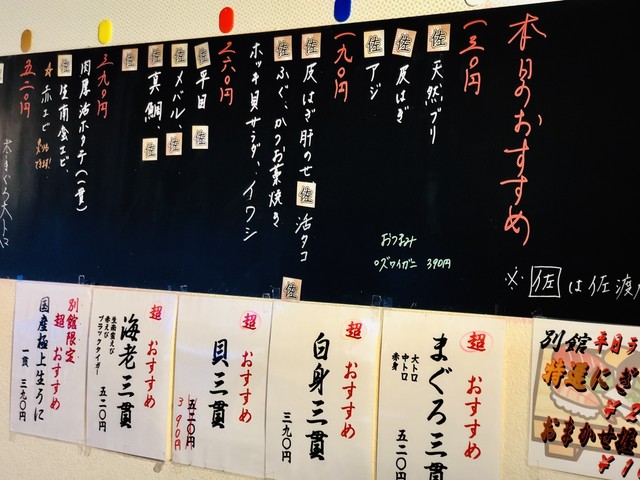 本日のおすすめ
※佐は佐渡
一三〇円
佐 天然ブリ
佐 皮はぎ
佐 アジ
一九〇円
佐 皮はぎ肝のせ 佐 活タコ
佐 ふぐ、かつお藁焼き 佐
ホッキ貝サラダ、イワシ
二六〇円
佐 平目 佐
佐 メバル 佐
佐 真鯛、佐
佐
三九〇円
肉厚活ホタテ(一貫)
佐 生南蛮エビ、
☆赤エビ
五二〇円
本まぐろ大トロ
おつまみ
ズワイガニ 390円
別館 平日ラ
特選にぎ
おまかせ極
超おすすめ
まぐろ三貫
大トロ
中トロ
赤身
五二〇円
超おすすめ
白身三貫
三九〇円
超おすすめ
貝三貫
五二〇円
390円
超おすすめ
海老三貫
生南蛮えび
赤えび
ブラックタイガー
五二〇円
別館限定
超おすすめ
国産極上生うに
一貫 三九〇円